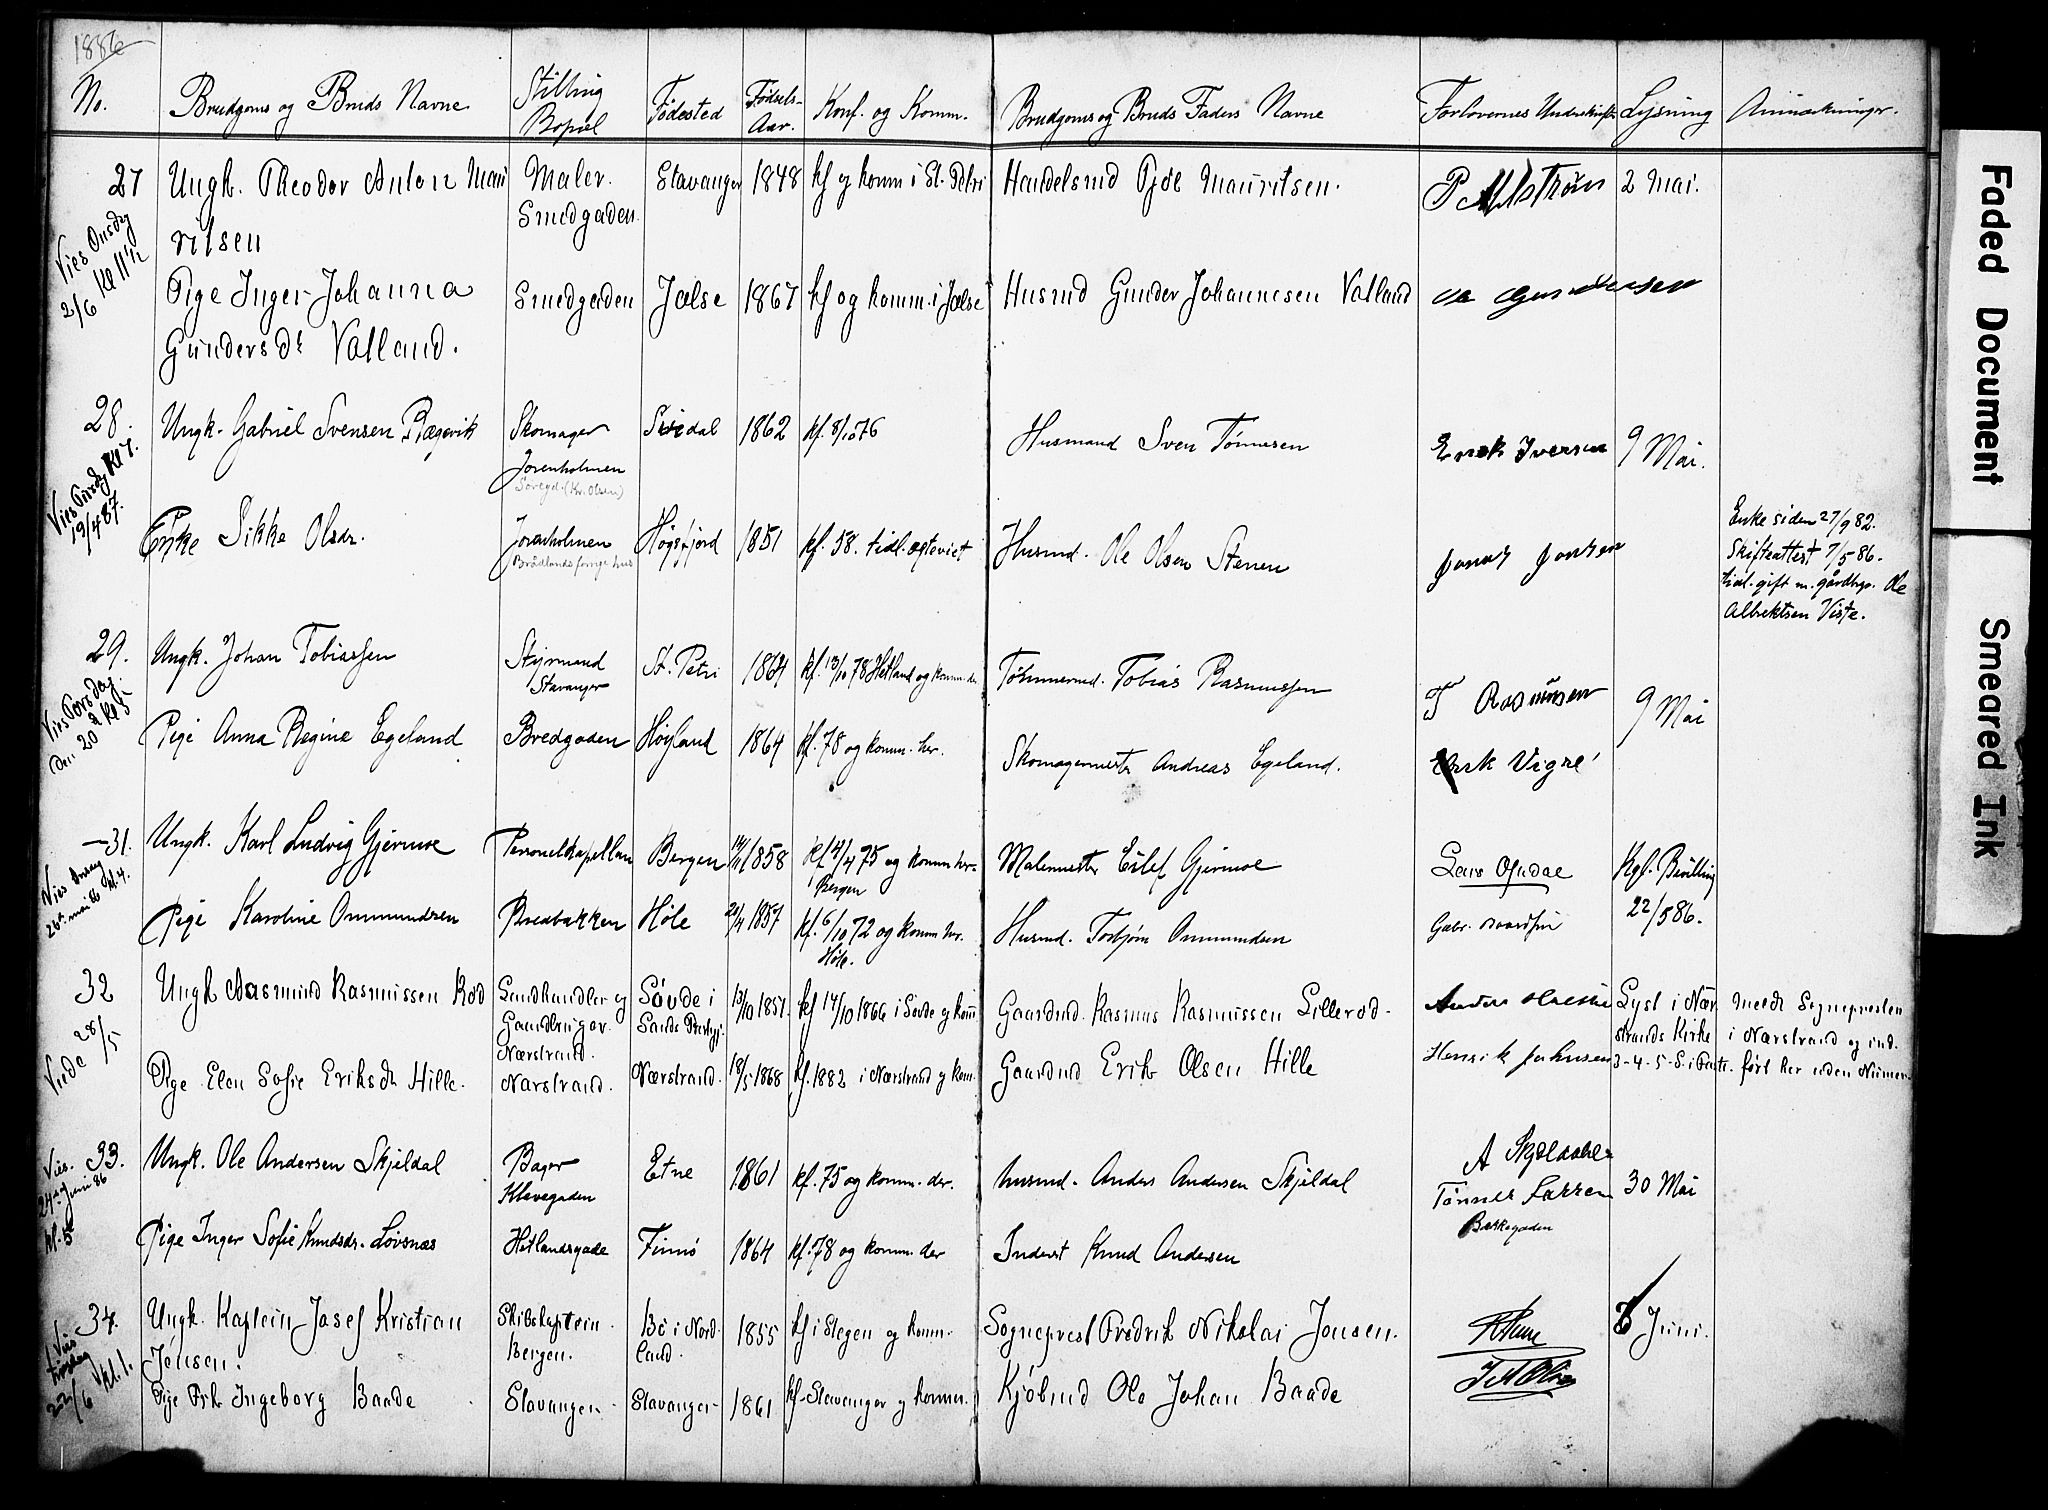 1886
No. Brudgoms og Bruds Navne Stilling Bopæl Fødested Fødsels-Aar. Konf. og Komm. Brudgoms og Bruds Faders Navne Forlovernes Underskrift Lysning Anmærkninger.
27 Ungk. Theodor Anton Mau Maler. Stavanger 1848 kf og komm i St. Petri Handelsmd Tjøl Mauritsen. 2 Mai.
ritsen Smedgaden.
Vies Onsdag 2/6 Kl 11 1/2
Pige Inger Johanna Smedgaden Jælse 1867 kf og komm. i Jælse Husmd Gunder Johannesen Valland Gundersen
Gundersdt Valland.
28. Ungk. Gabriel Svensen Rægevik Skomager Siredal 1862 kf. 8/10 76 Husmand Sven Tønnesen Enok Iversen 9 Mai.
Jorenholmen
Søregd. (Kr. Olsen)
Vies Tirsdg Kl 7. 19/4 87.
Enke Sikke Olsdr. Jorenholmen Høgsfjord 1851 kf. 58. tidl. ægteviet Husmd. Ole Olsen Stenen Jonas Jonsen
Brødlands forrige hus
Enke siden 27/9 82.
Skifteattest 7/5 86.
tidl. gift m. gårdbgr. Ole
Albrektsen Viste.
29. Ungk. Johan Tobiassen Styrmand St. Petri 1864 kf. 13/10 78 Hetland og komm. der Tømmermd. Tobias Rasmussen T Rasmusen 9 Mai
Stavanger
Vies Torsdag den 20 kl 5
Pige Anna Regine Egeland Bredgaden Høyland 1864 kf. 78 og komm. her. Skomagermester Andreas Egeland. Erik Vigre
31. Ungk. Karl Ludvig Gjerme Personelkapellan Bergen 14/11 1858 kf. 4/4 75 og komm her. Malermester Eilef Gjermoe Lars Opdal Kgl. Bevilling
Bergen
Vies Onsdag 26. mai 86 kl. 4.
Pige Karoline Ommundsen Bredbakken Høle 1857 kf. 6/10 72 og komm her. Husmd. Torbjørn Ommundsen 22/5 86.
Høle.
32 Ungk Aasmund Rasmussen Rød Landhandler og Søvde i 13/10 1857. kf 14/10 1866 i Søvde og komm Gaardmd. Rasmus Rasmussen Lillerød. Lyst i Nær meldt Sognepresten
Gaardbruger. Sands Prestgj. strands Kirke i Nærstrand og ind.
Nærstrand.
Viede 28/5
Pige Elen Sofie Eriksdt Hille. Nærstrand. Nærstrand. 18/5 1868 kf. 1882 i Nærstrand og kom. Gaardmd Erik Olsen Hille Henrik Johnsen 3-4-5-S. i Paaske. ført her uden Numer.
33. Ungk. Ole Andersen Skjeldal Bager Etne 1861 kf. 75 og komm. der. Husmd. Anders Andersen Skjeldal A Skjeldahl
Klavegaden Tønnes Larsen 30 Mai
Bakkegaden
Vies. 24de Juni 86 kl. 5
Pige Inger Sofie Knudsdr. Løvsnæs Hetlandsgade Finnø 1864 kf. 78 og komm. der Inderst Knud Andersen
34. Ungk. Kaptein Josef Kristian Skibskaptein Bø i Nord 1855 kf i Stegen og komm. Sogneprest Fredrik Nikolai Jensen. 6 Juni.
Jensen. Bergen. land.
Vies Tirsdag 22/6 kl. 1.
Pige Frk Ingeborg Baade Stavanger Stavanger 1861 kf. Stavanger og komm. Kjøbmd Ole Johan Baade
Faded Document
Smeared Ink